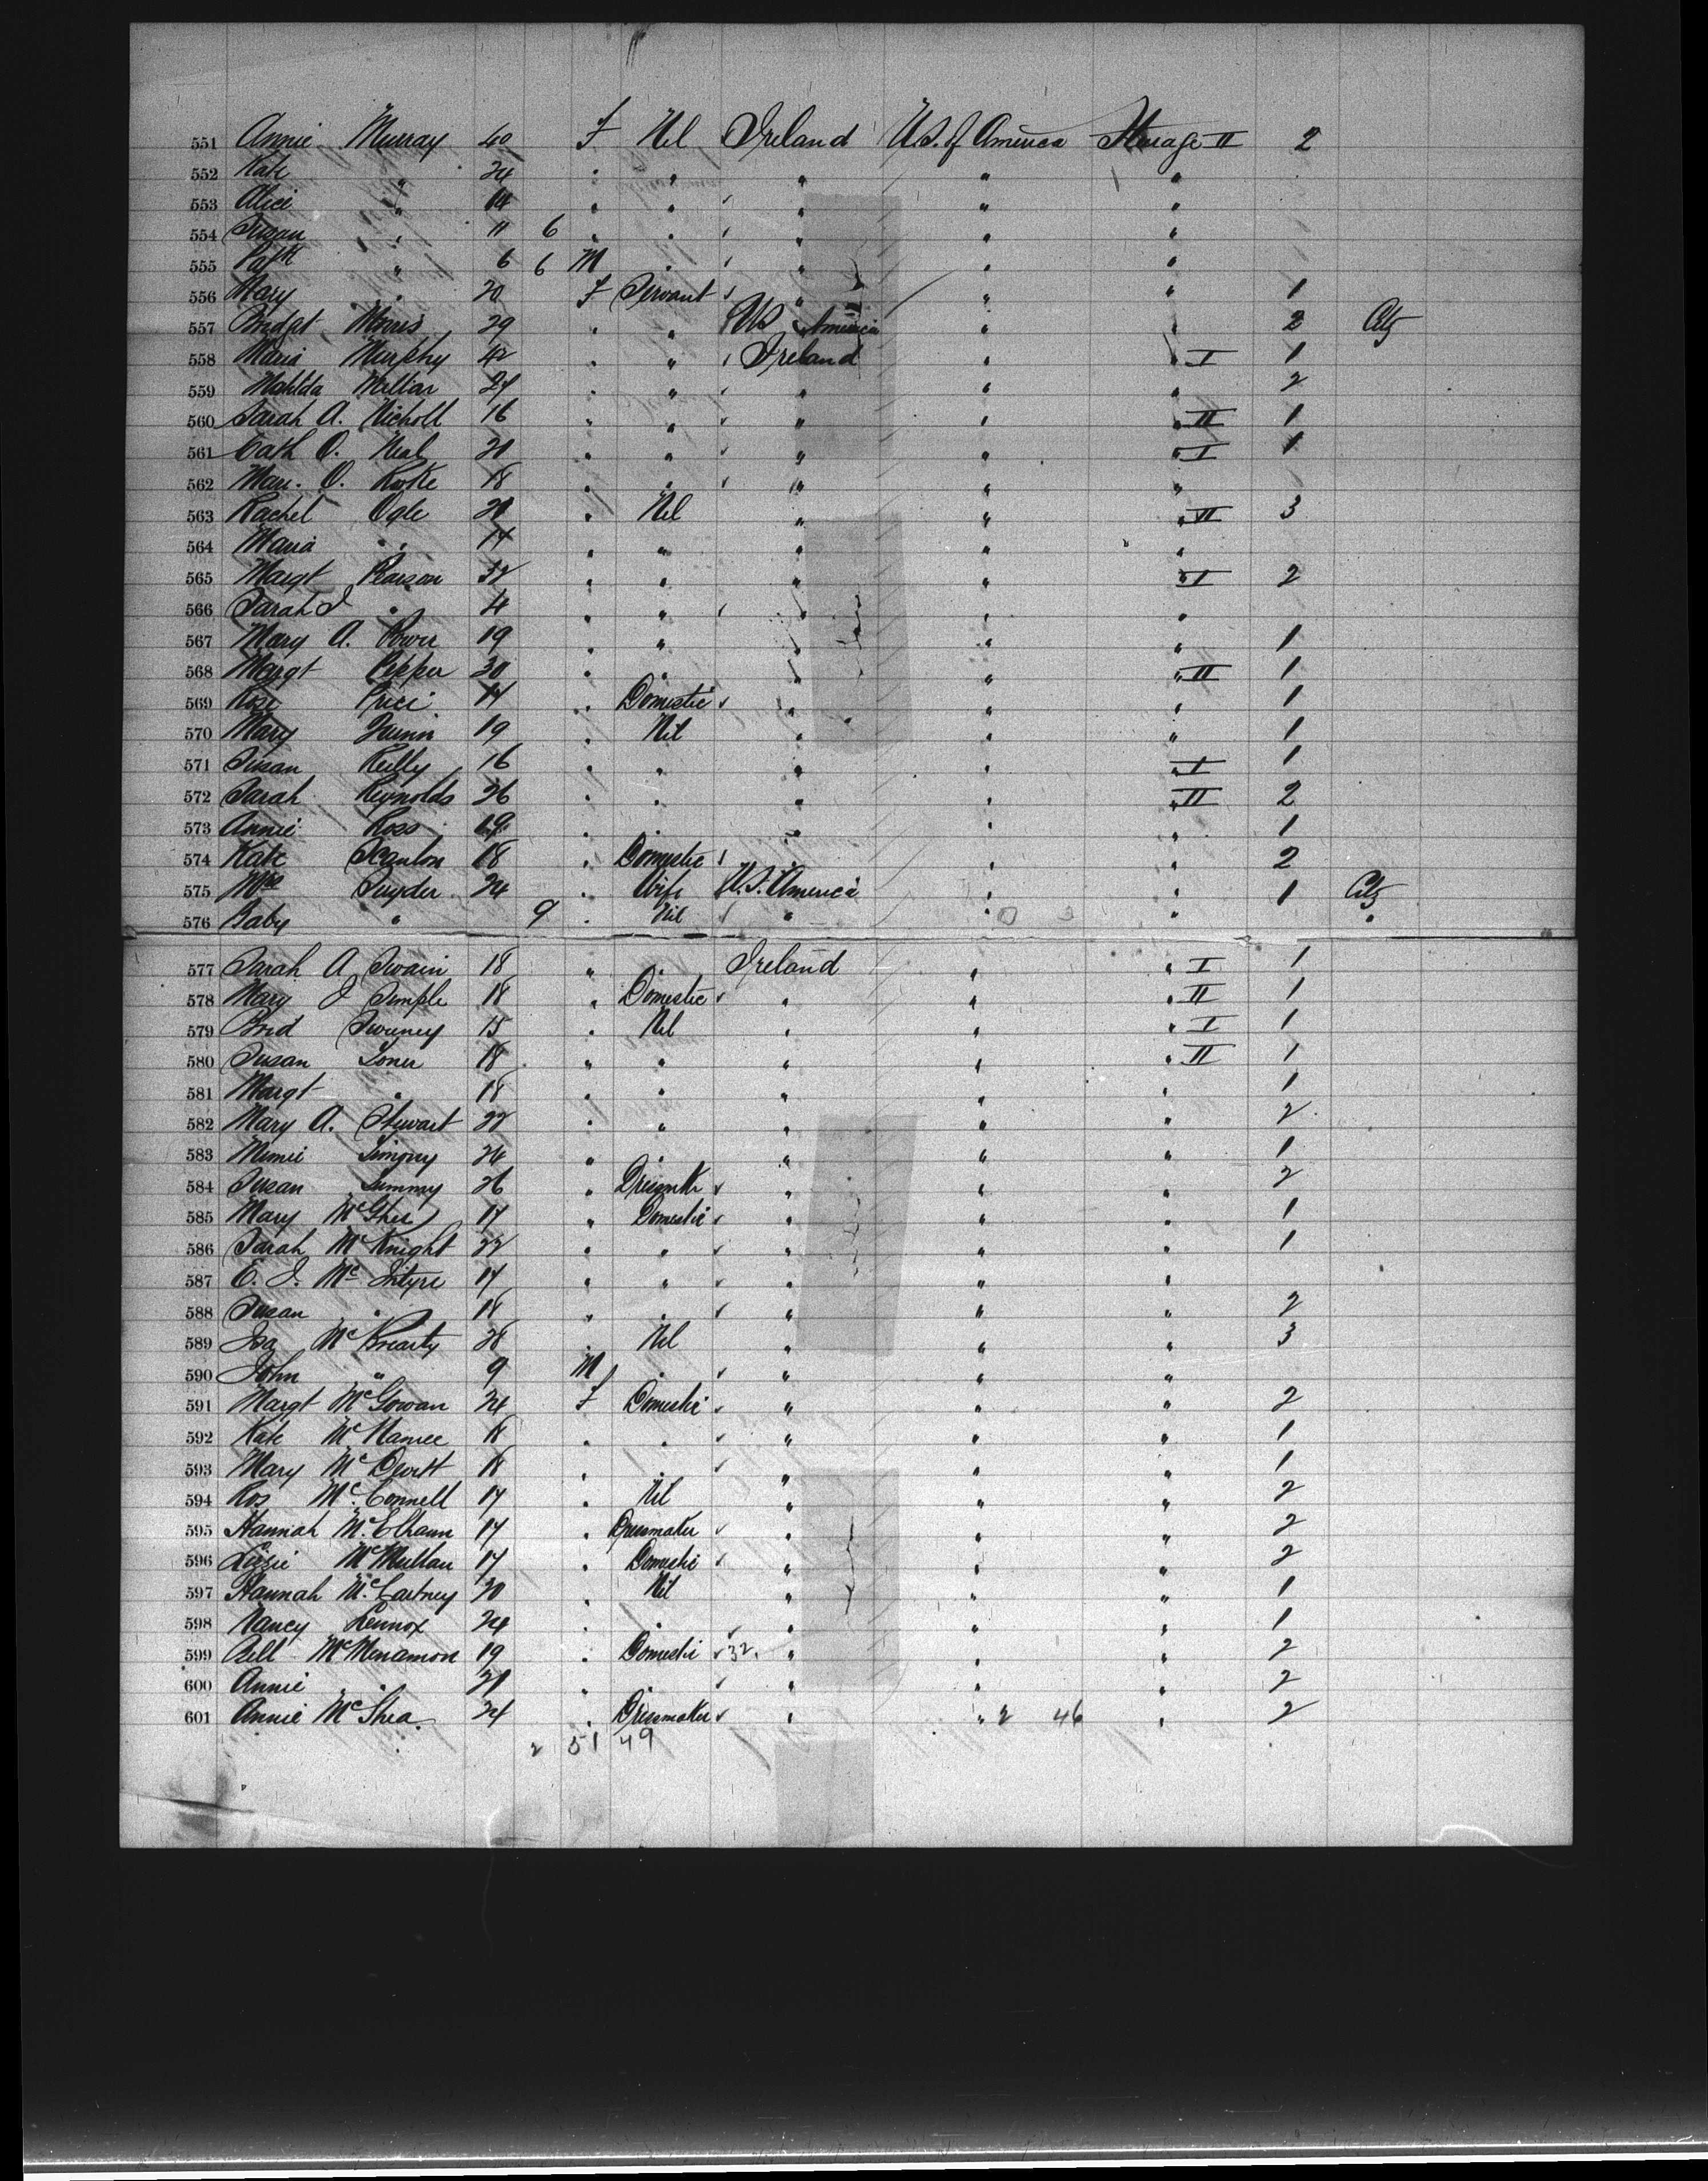 551 Annie Murray 40 F Nil Ireland U.S. of America Steerage II 2
552 Kate " 24 " " " " "
553 Alice " 14 " " " " "
554 Susan " 11 6 " " " " "
555 Patk " 6 6 M " " " "
556 Mary " 20 F Servant " " " 1
557 Bridget Morris 29 " " US America " " 2 Citz
558 Maria Murphy 42 " " Ireland " " I 1
559 Matilda Millar 21 " " " " " 2
560 Sarah A. Nicholl 16 " " " " " II 1
561 Cath O. Neal 20 " " " " " I 1
562 Mar. O. Rorke 18 " " " " "
563 Rachel Ogle 20 " Nil " " " II 3
564 Maria " 17 " " " " "
565 Margt Pearson 32 " " " " " I 2
566 Sarah J " 4 " " " " "
567 Mary A. Power 19 " " " " " 1
568 Margt Pepper 30 " " " " " II 1
569 Rose Price 17 " Domestic " " " 1
570 Mary Quinn 19 " Nil " " " 1
571 Susan Reilly 16 " " " " " I 1
572 Sarah Reynolds 26 " " " " " II 2
573 Annie Ross 19 " " " " 1
574 Kate Scanlon 18 " Domestic " " " 2
575 Mrs Snyder 24 " Wife U.S. America " " 1 Citz
576 Baby " 9 " Nil " " " "
577 Sarah A Swain 18 " " Ireland " " I 1
578 Mary J Semple 18 " Domestic " " " II 1
579 Brid Sweeney 15 " Nil " " " I 1
580 Susan Toner 18 " " " " " II 1
581 Margt " 18 " " " " " 1
582 Mary A. Stewart 22 " " " " " 2
583 Mimie 24 " " " " 1
584 Susan 26 " Dressmkr " " " 2
585 Mary McGhee 17 " Domestic " " " 1
586 Sarah McKnight 22 " " " " " 1
587 E. J. McIntyre 17 " " " " "
588 Susan " 18 " " " " " 2
589 Isa 28 " Nil " " " 3
590 John " 9 M " " " "
591 Margt McGowan 24 F Domestic " " " 2
592 Kate McNamee 18 " " " " " 1
593 Mary McDevitt 18 " " " " 1
594 Ros McConnell 17 " Nil " " " 2
595 Hannah McElhaun 17 " Dressmaker " " " 2
596 Lizzie McMullan 17 " Domestic " " " 2
597 Hannah McCartney 20 " Nil " " " 1
598 Nancy Lennox 24 " " " " " 1
599 Bell McMenamon 19 " Domestic 32 " " " 2
600 Annie " 21 " " " " 2
601 Annie McShea. 24 " Dressmaker " " 2 46 " 2
2 51 49